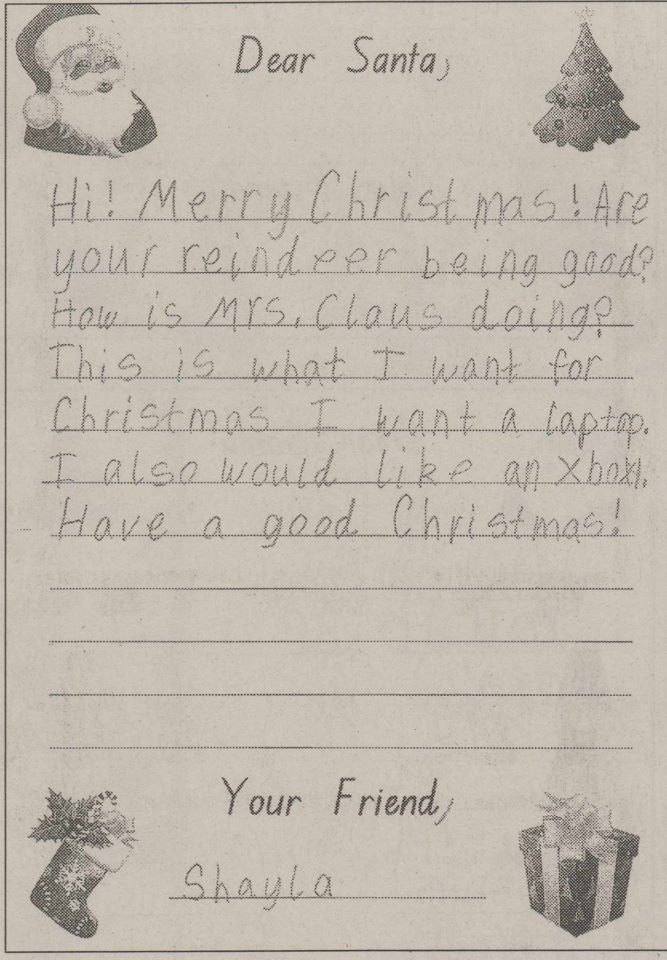 Dear Santa,
Hi! Merry Christmas! Are
your reindeer being good?
How is Mrs. Claus doing?
This is what I want for
Christmas I want a laptop.
I also would like an Xbox1.
Have a good Christmas!
Your Friend,
Shayla